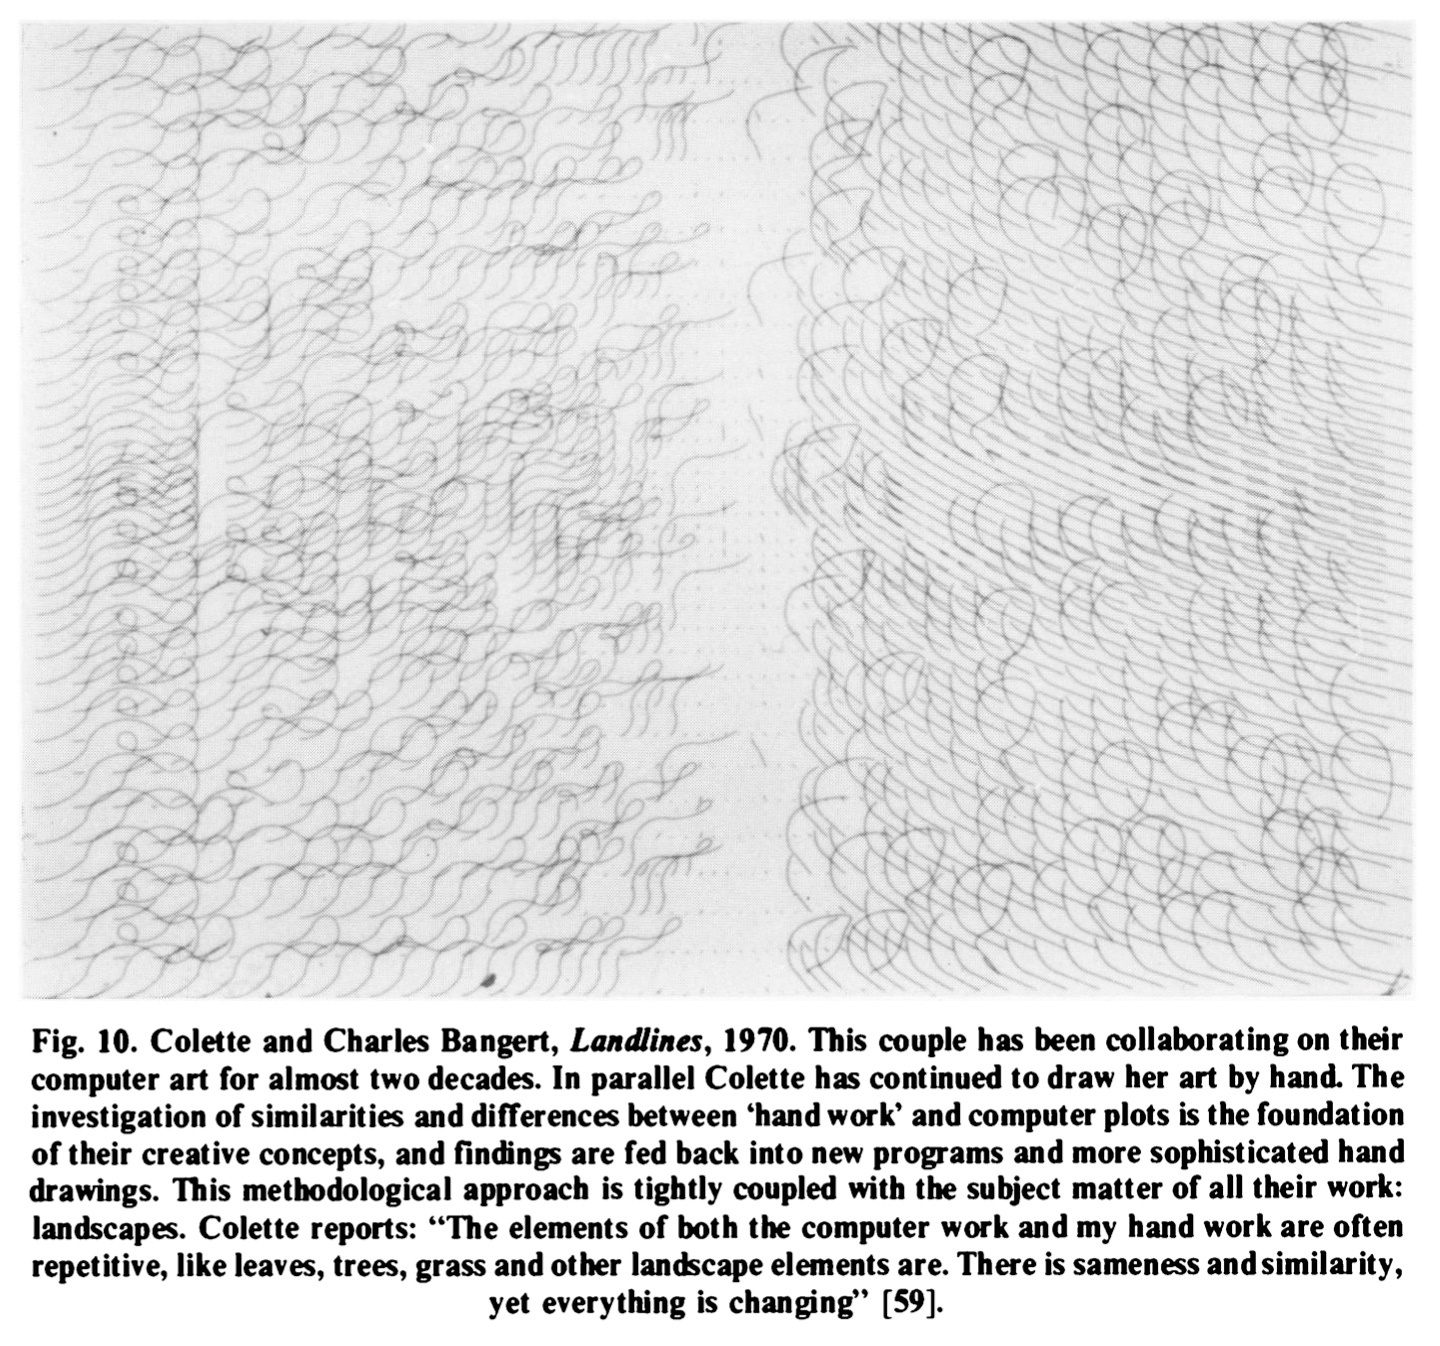 Fig. 10. Colette and Charles Bangert, Landlines, 1970. This couple has been collaborating on their
computer art for almost two decades. In parallel Colette has continued to draw her art by hand. The
investigation of similarities and differences between ‘hand work’ and computer plots is the foundation
of their creative concepts, and findings are fed back into new programs and more sophisticated hand
drawings. This methodological approach is tightly coupled with the subject matter of all their work:
landscapes. Colette reports: “The elements of both the computer work and my hand work are often
repetitive, like leaves, trees, grass and other landscape elements are. There is sameness and similarity,
yet everything is changing” [59].